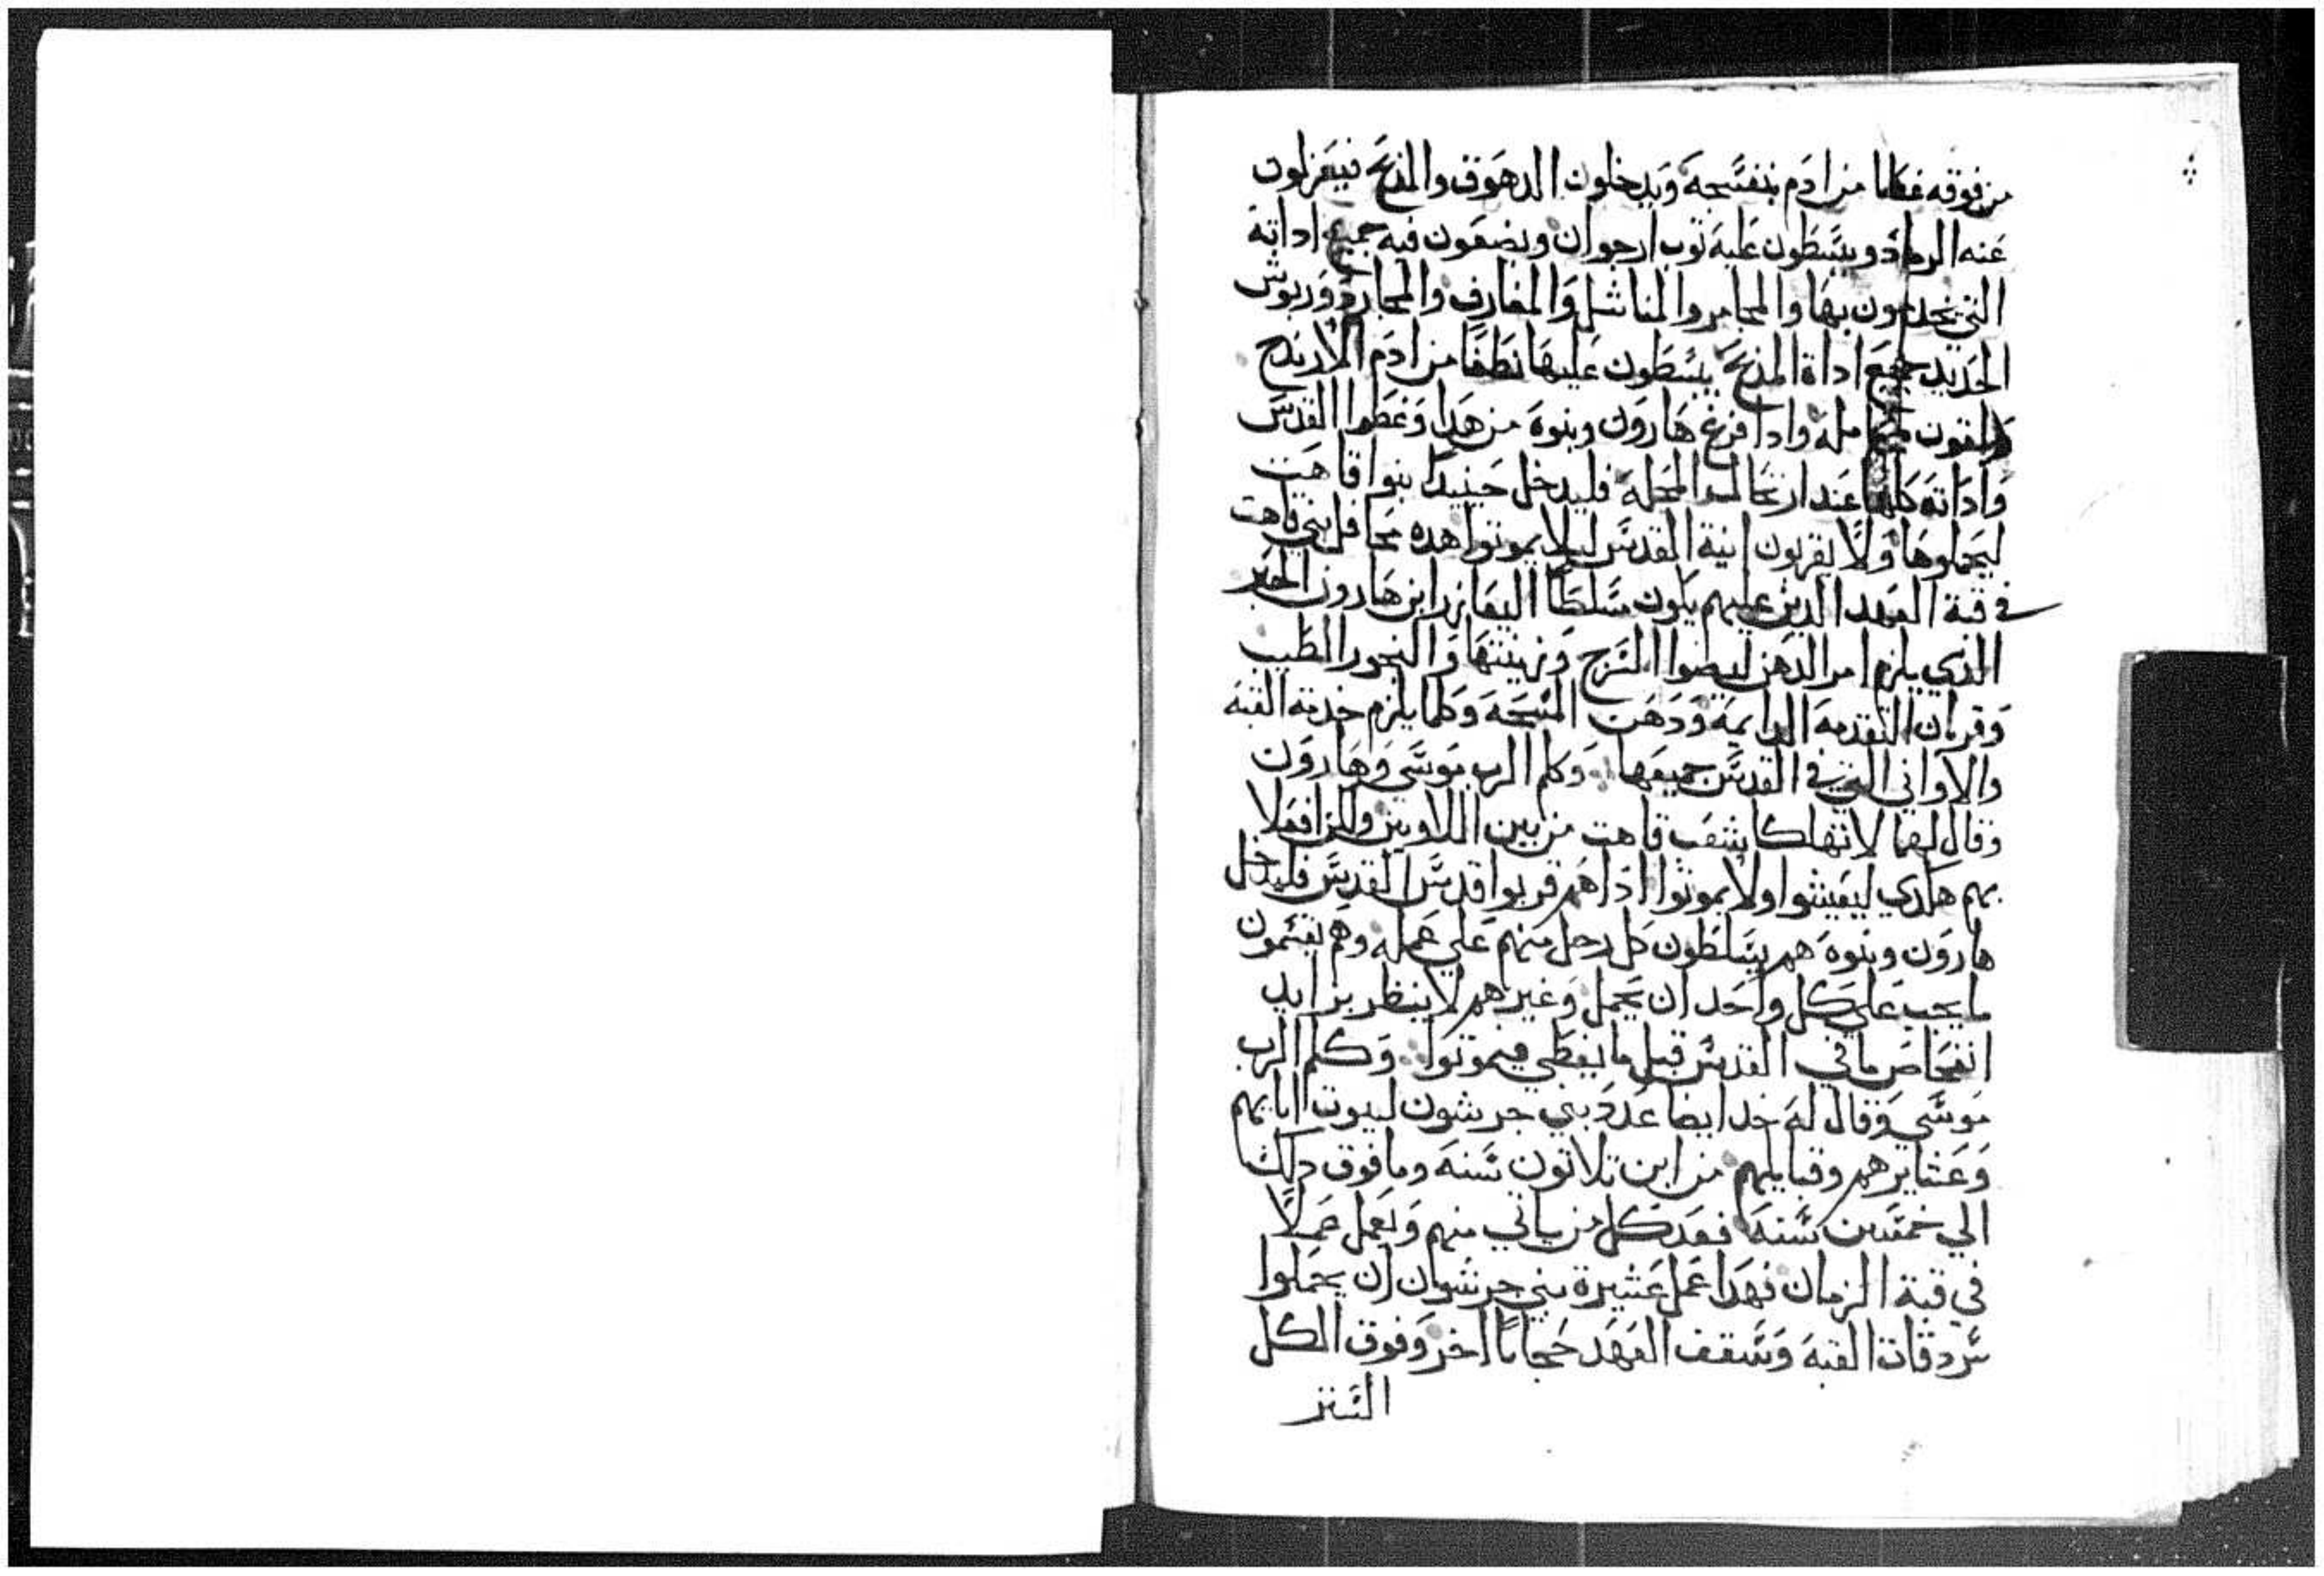 من فوقه غطا من ادم بنفسجه ويدخلون الدهوق والمذبح فيعزلون
عنه الرماد ويبسطون عليه ثوب ارجوان ويضعون فيه جميع اداته
التي يخدمون بها والمجامر والمناشل والمغارف والمجارد وربوش
الحديد جميع اداة المذبح يبسطون عليها نطفا من ادم الارندج
ويلقون محامله وادا فرغ هارون وبنوه من هدا وغطوا القدس
واداته كلها عند ارتحال المحله فليدخل حينيدا بنوا قاهت
ليحملوها ولا يقربون انية القدس ليلا يموتوا هده محافل بني قاهت
في قبة العهد الدين عليهم يكون مسلطا اليعازر ابن هارون الحبر
الذي يلزم امر الدهن ليضوا السرج وتهيئتها والبخور الطيب
وقربان التقدمه الدايمه ودهن المسحه وكلما يلزم خدمة القبه
والاواني التي في القدس جميعها وكلم الرب موسي وهارون
وقال لهما لا تهلكا شعب قاهت من بين اللاويين ولكن افعلا
بهم هكدي ليعيشوا ولا يموتوا ادا هم قربوا قدس القدس فليدخل
هارون وبنوه هم يتسلطون كل رجل منهم علي عمله وهم يقسمون
ما يجب علي كل واحد ان يحمل وغيرهم لا ينظر بزايد
انفحاص ما في القدس قبل ما يغطي فيموتوا وكلم الرب
موسي وقال له خد ايضا عدد بني جرشون لبيوت ابايهم
وعشايرهم وقبايلهم من ابن تلاتون سنه وما فوق دلك
الي خمسين سنه فعد كل من ياتي منهم ويعمل عملا
في قبة الزمان فهدا عمل عشيرة بني جرشون ان يحملوا
سردقات القبه وسقف العهد حجابا اخر وفوق الكل
الستر